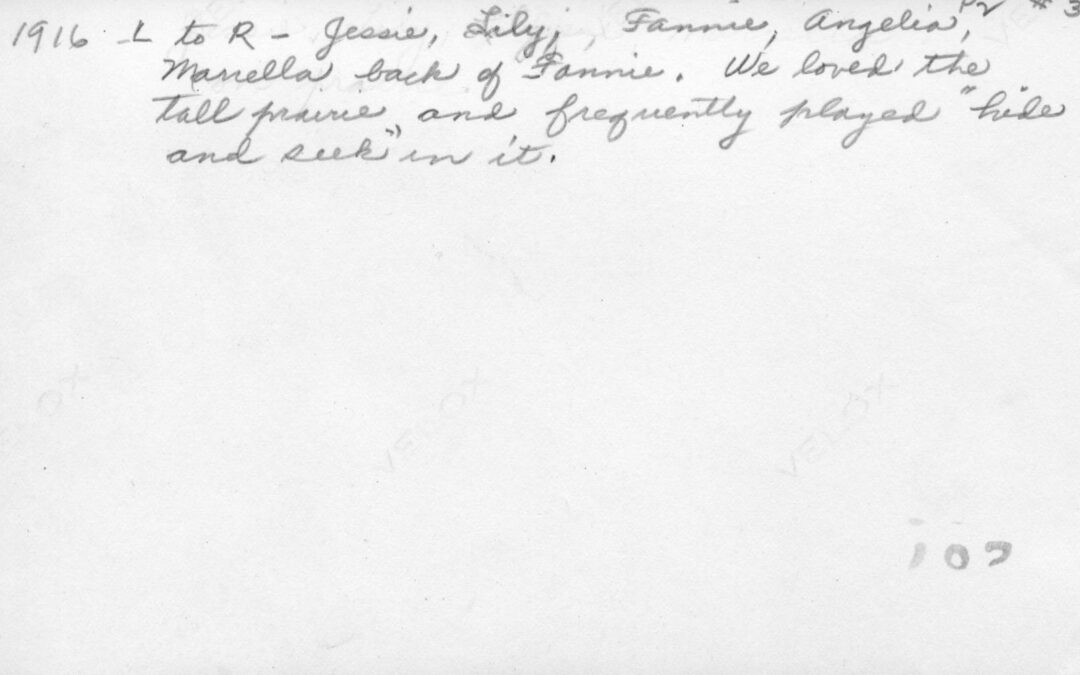 1916 - L to R - Jessie, Lily, , Fannie, Angelia, P2 # 3
Mariella back of Fannie. We loved the
tall prairie and frequently played "hide
and seek" in it.
VELOX
VELOX
OX